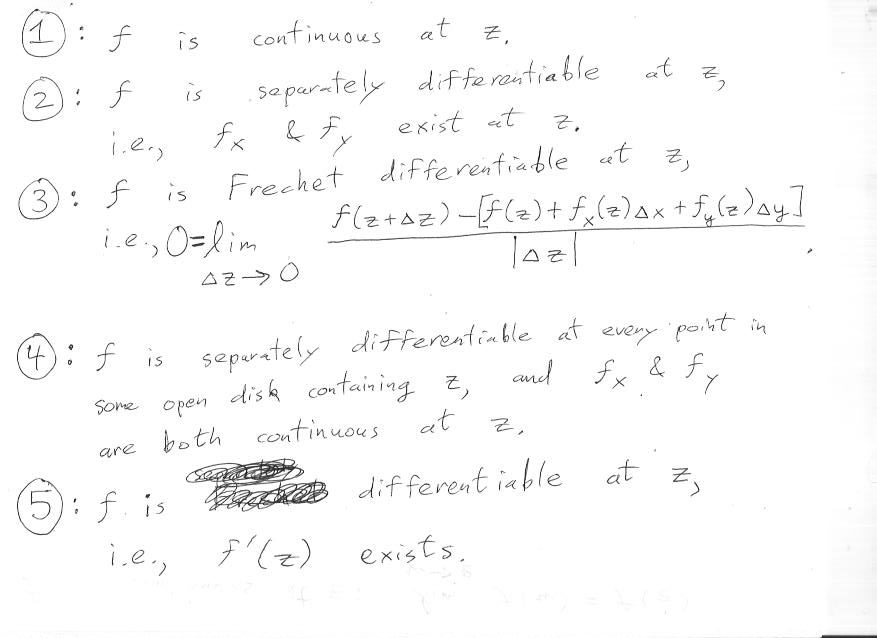 ①: f is continuous at z.
②: f is separately differentiable at z,
i.e., fx & fy exist at z.
③: f is Frechet differentiable at z,
i.e., 0=lim Δz→0 f(z+Δz)-[f(z)+fx(z)Δx+fy(z)Δy] / |Δz| .
④: f is separately differentiable at every point in
some open disk containing z, and fx & fy
are both continuous at z.
⑤: f is differentiable at z,
i.e., f'(z) exists.